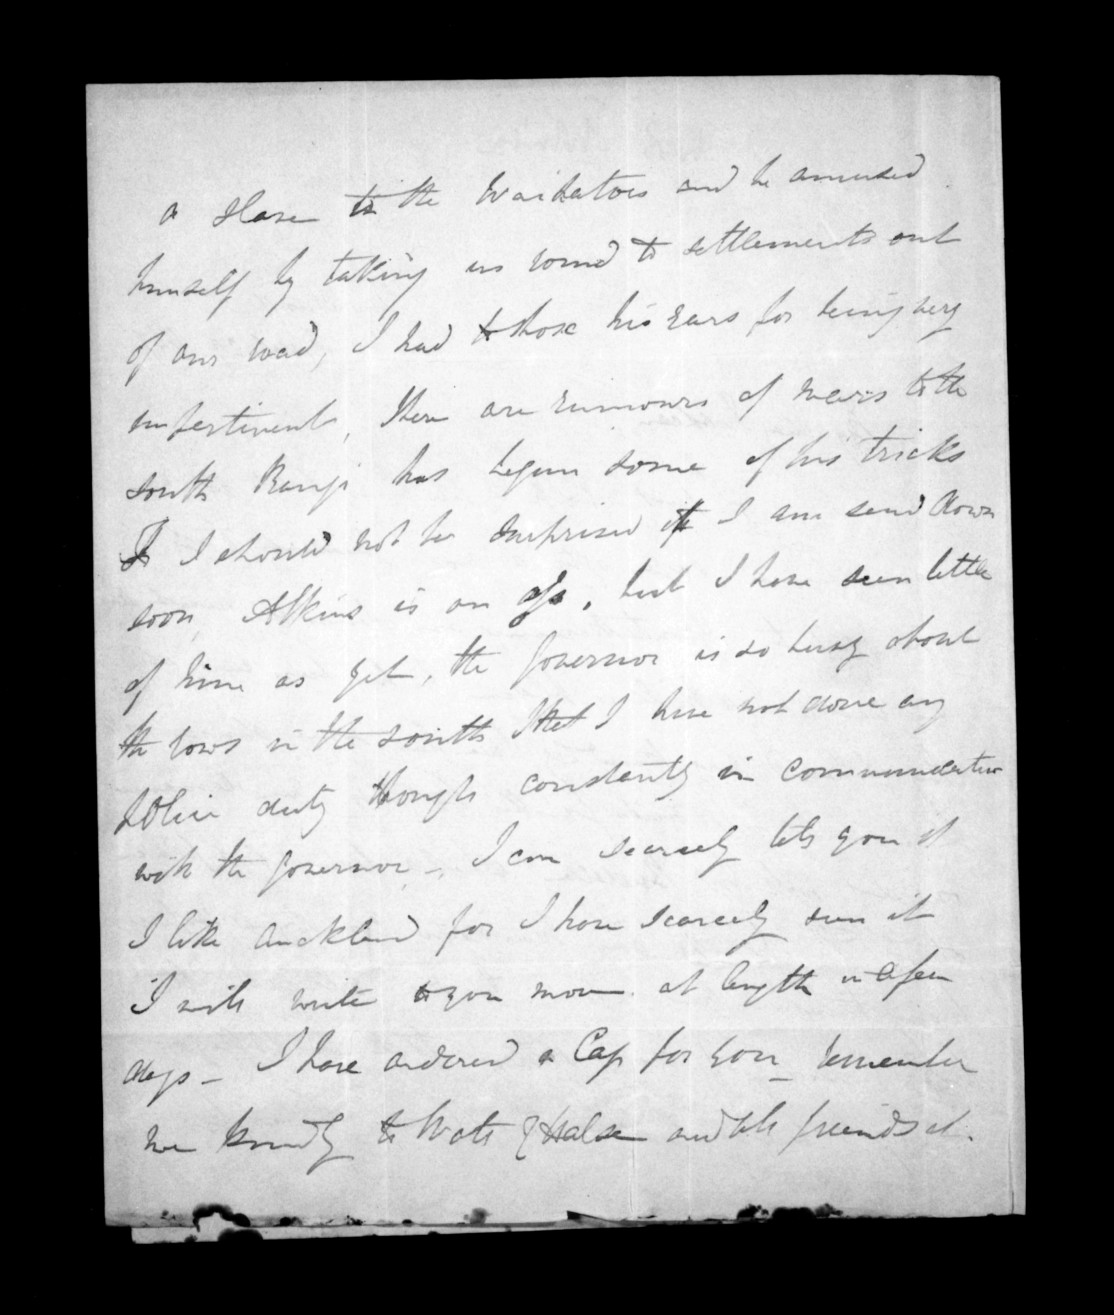 a slave to the Waikatoes and he amused
himself by taking us round to settlements out
of our road, I had to those his Ears for being very
impertinent, There are rumours of wars to the
south Rangi has begun some of his tricks
I should not be surprised if I am send down
soon, Atkins is an ass, but I have seen little
of him as yet, the Governor is so busy about
the rows in the south that I have not done any
Police duty though constantly in communication
with the Governor - I can scarcely tell you if
I like Auckland for I have scarcely seen it
I will write to you more at length in a few
days - I have ordered a Cap for you - remember
me kindly to Wate & Halse and all friends at